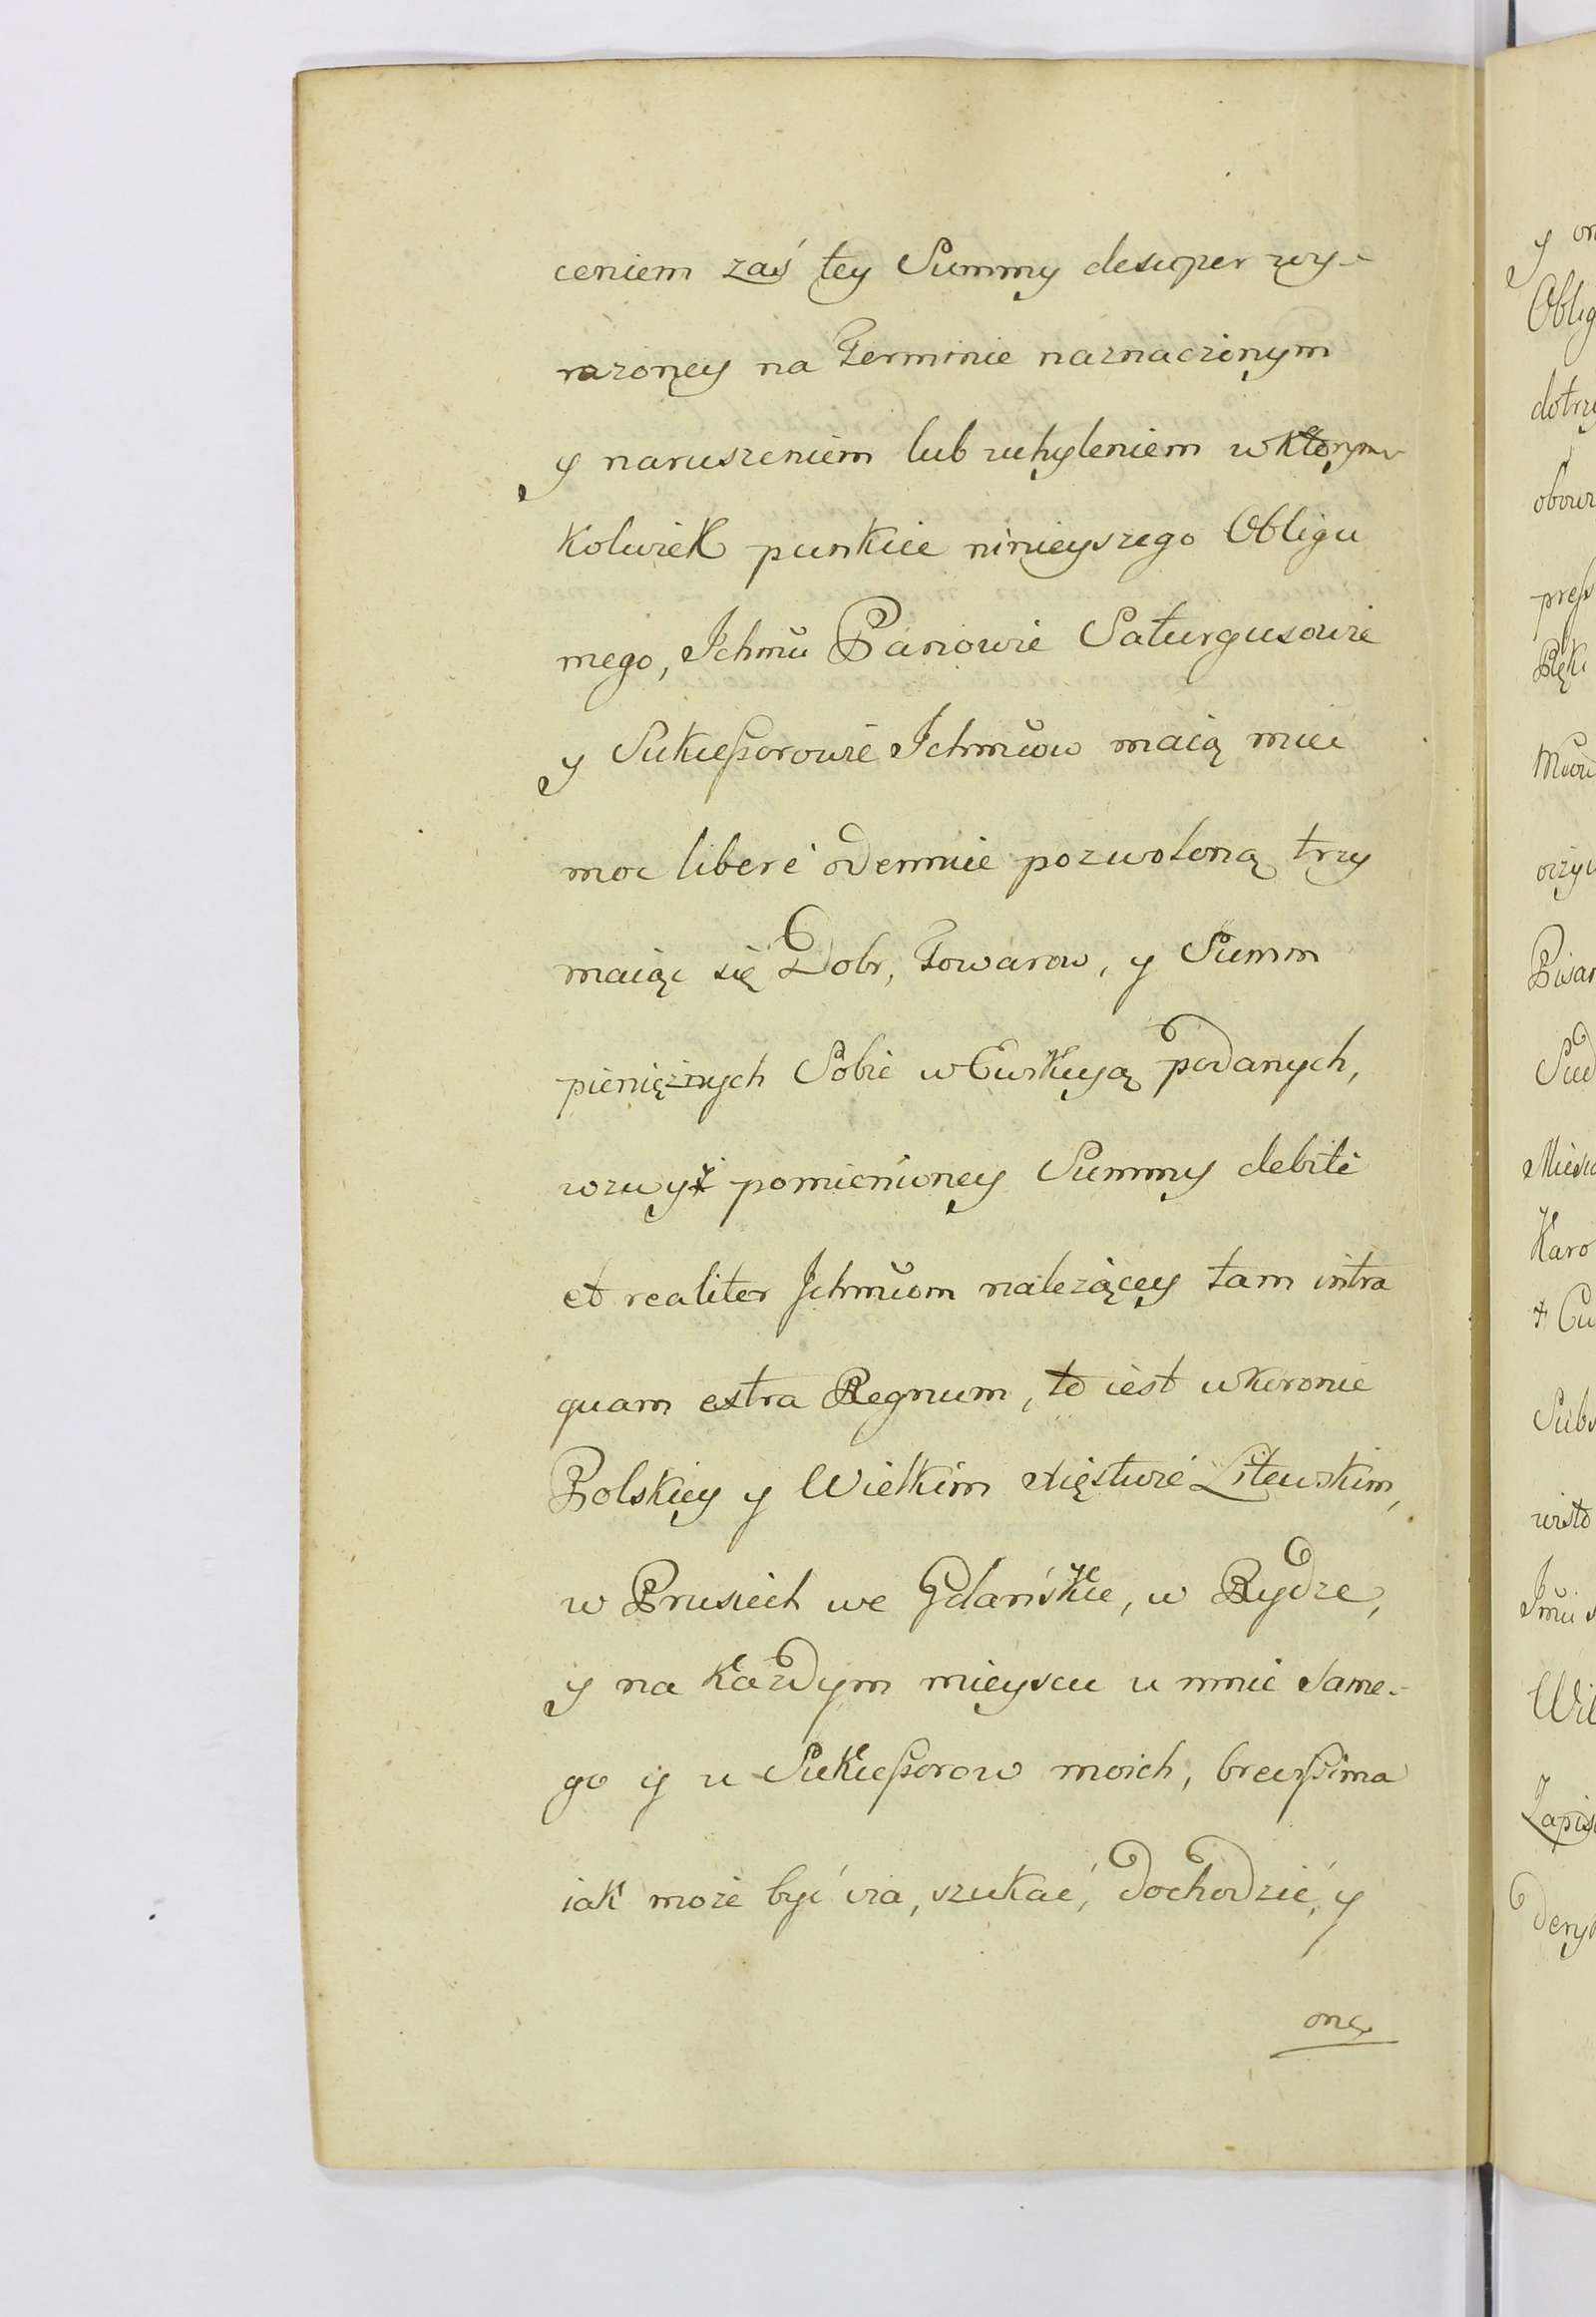 ceniem zaś tey Summy desuper wy-
rażoney na Terminie naznaczonym
y naruszeniem lub uchyleniem w ktorym
kolwiek punkcie ninieyszego Obligu
mego, Ichmu Panowie Saturgusowie
y Sukceßorowie Ichmuow maią mieć
moc liberé odemnie pozwoloną trzy
maiąc się Dobr, Towarow, y Summ
pieniężnych Sobie w Ewikcyą podanych,
wzwyż pomienioney Summy debité
et realiter Ichmuom należącey tam intra
quam extra Regnum, to iest w Koronie
Polskiey y Wielkim Xięstwie Litewskim,
w Prusiech we Gdańskie, w Rydze,
y na każdym mieyscu u mnie same-
go y u Sukceßorow moich, brevißima
iak może być via, szukać, dochodzić, y
onę
y on
Oblig
dotrzy
obow
preß
Ręki
Pisar
Karo
Subs
Wil
Zapis